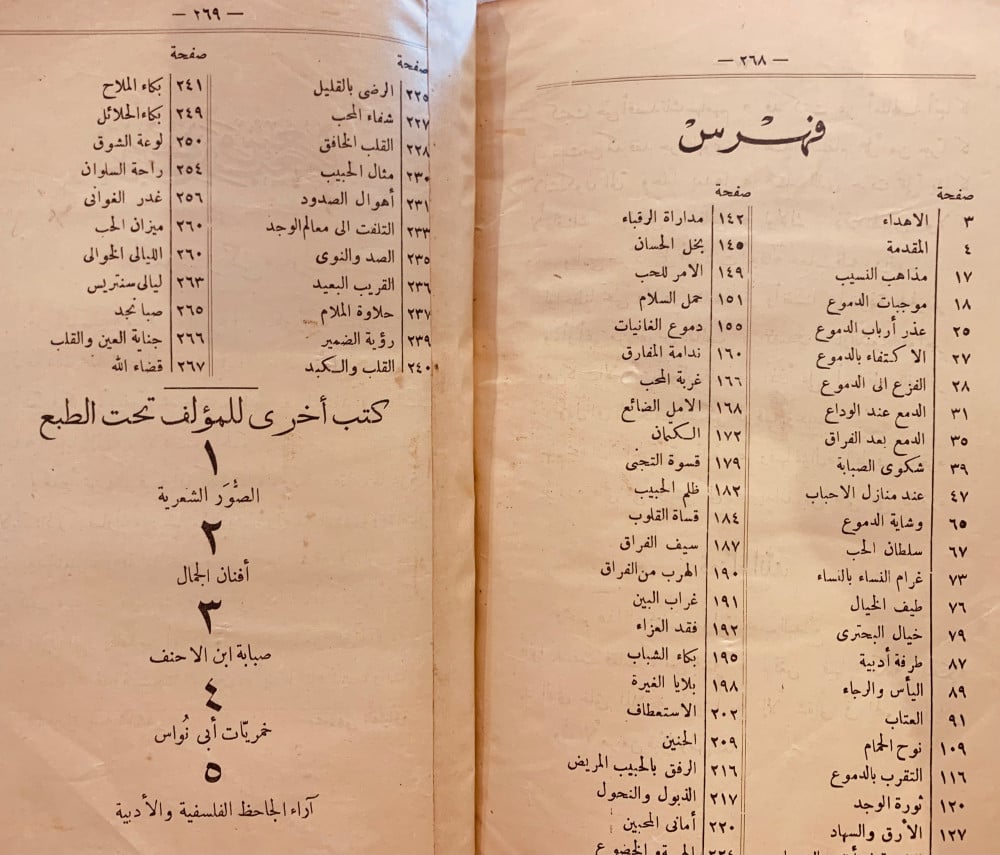 — ٢٦٨ —
فهرس
صفحة
٣ الاهداء
٤ المقدمة
١٧ مذاهب النسيب
١٨ موجبات الدموع
٢٥ عذر أرباب الدموع
٢٧ الاكتفاء بالدموع
٢٨ الفزع الى الدموع
٣١ الدمع عند الوداع
٣٥ الدمع بعد الفراق
٣٩ شكوى الصبابة
٤٧ عند منازل الاحباب
٦٥ وشاية الدموع
٦٧ سلطان الحب
٧٣ غرام النساء بالنساء
٧٦ طيف الخيال
٧٩ خيال البحترى
٨٧ طرفة أدبية
٨٩ اليأس والرجاء
٩١ العتاب
١٠٩ نوح الحمام
١١٦ التقرب بالدموع
١٢٠ ثورة الوجد
١٢٧ الأرق والسهاد
صفحة
١٤٢ مداراة الرقباء
١٤٥ بخل الحسان
١٤٩ الامر للحب
١٥١ حمل السلام
١٥٥ دموع الغانيات
١٦٠ ندامة المفارق
١٦٦ غربة المحب
١٦٨ الامل الضائع
١٧٢ الكتمان
١٧٩ قسوة التجنى
١٨٢ ظلم الحبيب
١٨٤ قساة القلوب
١٨٧ سيف الفراق
١٩٠ الهرب من الفراق
١٩١ غراب البين
١٩٢ فقد العزاء
١٩٥ بكاء الشباب
١٩٨ بلايا الغيرة
٢٠٢ الاستعطاف
٢٠٩ الحنين
٢١٦ الرفق بالحبيب المريض
٢١٧ الذبول والنحول
٢٢٠ أمانى المحبين
والخضوع
— ٢٦٩ —
صفحة
٢٢٥ الرضى بالقليل
٢٢٧ شفاء المحب
٢٢٨ القلب الخافق
٢٣٠ مثال الحبيب
٢٣١ أهوال الصدود
٢٣٣ التلفت الى معالم الوجد
٢٣٥ الصد والنوى
٢٣٦ القريب البعيد
٢٣٧ حلاوة الملام
٢٣٩ رؤية الضمير
٢٤٠ القلب والكبد
صفحة
٢٤١ بكاء الملاح
٢٤٩ بكاء الحلائل
٢٥٠ لوعة الشوق
٢٥٤ راحة السلوان
٢٥٦ غدر الغوانى
٢٦٠ ميزان الحب
٢٦٠ الليالى الخوالى
٢٦٣ ليالى سنتريس
٢٦٥ صبا نجد
٢٦٦ جناية العين والقلب
٢٦٧ قضاء الله
كتب أخرى للمؤلف تحت الطبع
١
الصُّوَر الشعرية
٢
أفنان الجمال
٣
صبابة ابن الاحنف
٤
خمريّات أبى نُواس
٥
آراء الجاحظ الفلسفية والأدبية